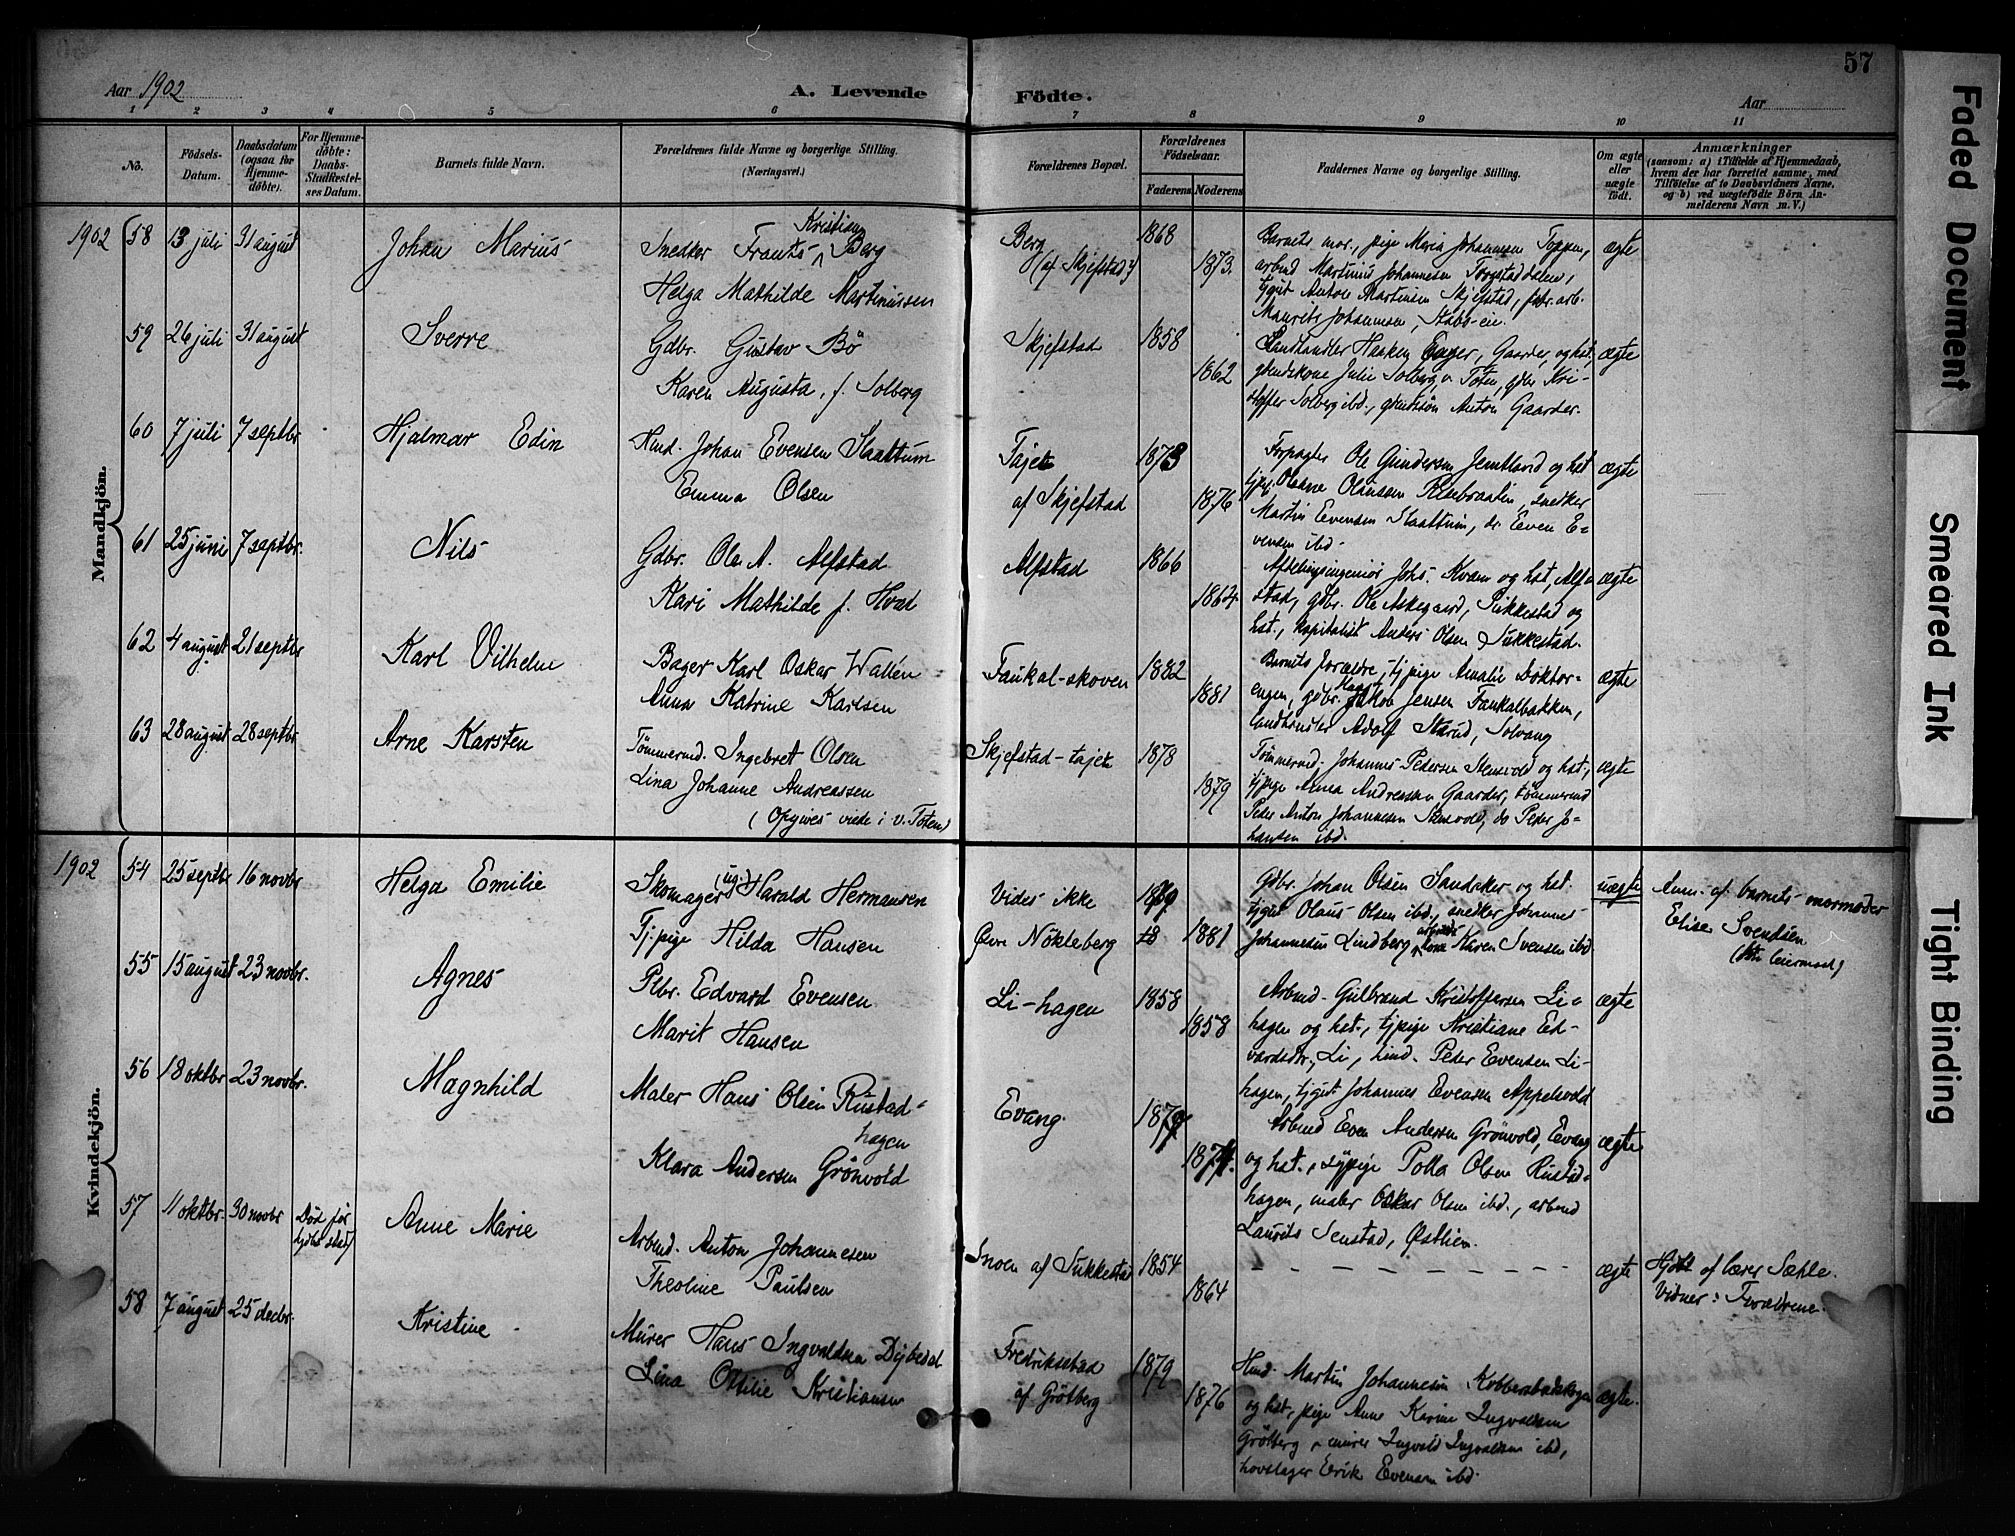 57
Aar 1902
A. Levende
Födte.
Aar
1 2 3 4 5 6 7 8 9 10 11
No.
Födsels-
Datum.
Daabsdatum
(ogsaa for
Hjemme-
döbte).
For Hjemme-
döbte:
Daabs-
Stadfæstel-
ses Datum.
Barnets fulde Navn.
Forældrenes fulde Navne og borgerlige Stilling.
(Næringsvei.)
Forældrenes Bopæl.
Forældrenes
Födselsaar.
Faderens. Moderens.
Faddernes Navne og borgerlige Stilling.
Om ægte
eller
uægte
födt.
Anmærkninger
(saasom: a) i Tilfælde af Hjemmedaab,
hvem der har forrettet samme, med
Tilföielse af to Daabsvidners Navne,
og b) ved uægtefödte Börn An-
melderens Navn m. V.)
Mandkjön.
1902 58 13 juli 31 august Johan Marius
Snedker Frants Kristian Berg
Helga Mathilde Martinussen
Berg
(af Skjefstad?)
1868
1873.
Barnets mor., pige Maria Johannesen Toppen,
arbmd Martinus Johannesen
tjgut Anton Martinsen Skjefstad, fabr. arb.
Maurits Johannesen, Stabs-eie.
ægte
59 26 juli 31 august Sverre
Gdbr. Gustav Bö
Karen Augusta, f. Solberg
Skjefstad
1858
1862
Landhandler Haaken Enger, Gaarder, og hst.,
gbrudskone Julie Solberg, v. Toten, gdbr Kri-
stoffer Solberg ibd., Anton Gaarder.
ægte
60 7 juli 7 septbr Hjalmar Edin
Hmd. Johan Evensen Slaattum
Emma Olsen
Tajet
af Skjefstad
1873
1876
Forpagter Ole Gundersen Jemtland og hst
tjpi. Oleane Olaussen snedker
Martin Evensen Slaattum, do Even E-
vensen ibd.
ægte
61 25 juni 7 septbr. Nils
Gdbr. Ole A. Alfstad
Kari Mathilde f. Hval
Alfstad
1866
1864
Afdelingsingeniør Johs. Kvam og hst, Alf-
stad, gdbr. Ole Askegaard, Sukkestad og
hst., kapitalist Anders Olsen Sukkestad.
ægte
62 4 august 21 septbr Karl Vilhelm
Bager Karl Oskar Wallén
Anna Katrine Karlsen
Faukal-skoven
1882
1881
Barnets forældre, tjpige Amalie Doktor-
engen, gdbr. Jakob Jensen Faukalbakken,
landhandler Adolf Starud, Solvang
ægte
63 28 august 28 septbr Arne Karsten
Tømmermd. Ingebret Olsen
Lina Johanne Andreassen
(Opgives viede i v. Toten)
Skjefstad-tajet
1878
1879
Tømmermd. Johannes Pedersen Stensvold og hst.,
tjpige Anna Andreassen Gaarder, tømmermd
Peder Anton Johannesen Stensvold, do Peder Jo-
hansen ibd.
ægte
Kvindekjön.
1902 54 25 septbr 16 novbr Helga Emilie
Skomager (ug.) Harald Hermansen
Tj.pige Hilda Hansen
Vides ikke
Øvre Nökleberg
1879
1881
Gdbr. Johan Olsen Sandaker og hst.
tjgut Olaus Olsen ibd., snedker Johannes
Johannesen Lindberg, kone Karen Svensen ibd
uægte
Anm. af barnets mormoder
Elise Svendsen
55 15 august 23 novbr. Agnes
Plbr. Edvard Evensen
Marit Hansen
Li-hagen
1858
1858
Arbmd. Gulbrand Kristoffersen Li-
hagen og hst., tjpige Kristiane Ed-
vardsdr., Li, hmd. Peder Evensen Li-
hagen, tjgut Johannes Evensen Appelsvold
ægte
56 18 oktbr 23 novbr. Magnhild
Maler Hans Olsen Rustad-
hagen
Klara Andersen Grönvold
Evang.
1879
1874.
Arbmd Even Andersen Grönvold, Evang
og hst., sypige Polla Olsen Rustad-
hagen, maler Oskar Olsen ibd., arbmd
Laurits Senstad, Østlien.
ægte
57 11 oktbr. 30 novbr Død før
stadf.
Anne Marie
Arbmd. Anton Johannesen
Theoline Paulsen
Snoen af Sukkestad
1854
1864
ægte
Hjdbt af lærer Sæhle.
Vidner: Forældrene.
58 7 august 25 decbr. Kristine
Murer Hans Ingvaldsen Dybedal
Lina Otilie Kristiansen
Fredriksstad
af Grötberg
1879
1876
Hmd. Martin Johannesen Kobberstadskogen
og hst, pige Anne Karine Ingvaldsen
Grötberg, murer Ingvald Ingvaldsen ibd,
hovslager Erik Evensen ibd.
ægte.
Faded Document
Smeared Ink
Tight Binding